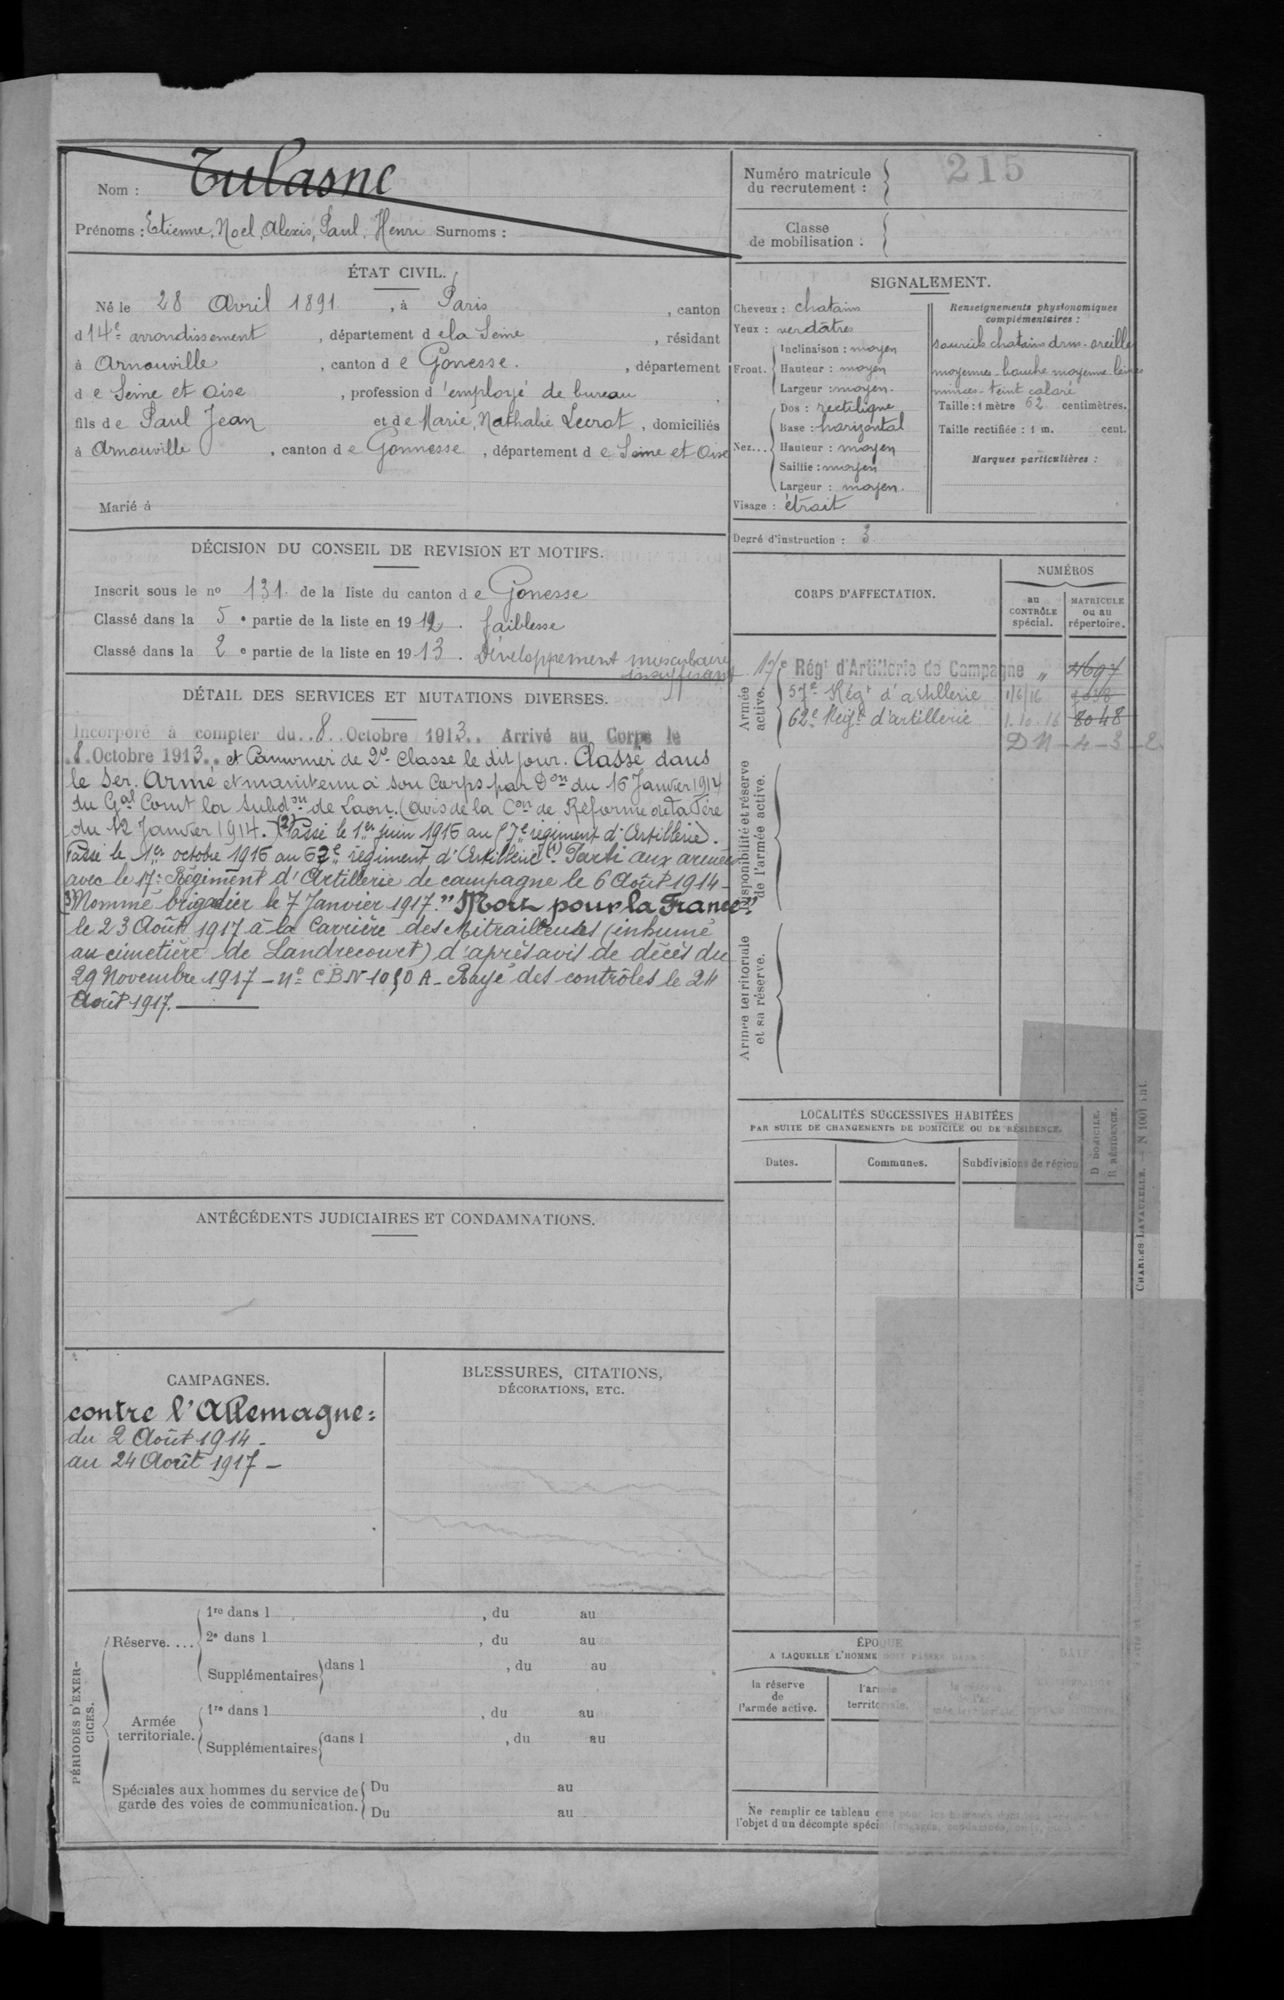 Nom : Tulasne
Prénoms : Etienne, Noel, Alexis, Paul, Henri Surnoms :
ÉTAT CIVIL.
Né le 28 Avril 1891, à Paris, canton
d 14e arrondissement, département de la Seine, résidant
à Arnouville, canton de Gonesse, département
de Seine et Oise, profession d'employé de bureau
fils de Paul Jean et de Marie, Nathalie Lecrat, domiciliés
à Arnouville, canton de Gonnesse, département de Seine et Oise
Marié à
DÉCISION DU CONSEIL DE REVISION ET MOTIFS.
Inscrit sous le no 131 de la liste du canton de Gonesse
Classé dans la 5e partie de la liste en 1912. faiblesse
Classé dans la 2e partie de la liste en 1913. Développement musculaire
insuffisant
DÉTAIL DES SERVICES ET MUTATIONS DIVERSES.
Incorporé à compter du 8 Octobre 1913. Arrivé au Corps le
8 Octobre 1913. et Canonnier de 2e Classe le dit jour. Classé dans
le Ser. Armé et maintenu à son Corps par Don du 16 Janvier 1914
du Gal Comt la Subdon de Laon. (avis de la Con de Réforme de La Fère
du 12 Janvier 1914. (2) Passé le 1er juin 1916 au 57e régiment d'Artillerie).
Passé le 1er octobre 1916 au 62e régiment d'Artillerie (1) Parti aux armées
avec le 17e Régiment d'Artillerie de campagne le 6 Août 1914 -
(3) Nommé brigadier le 7 Janvier 1917. "Mort pour la France"
le 23 Août 1917 à la Carrière des Mitrailleuses (inhumé
au cimetière de Landrecourt) d'après avis de décès du
29 Novembre 1917 - No CBN-1050 A - Rayé des contrôles le 24
Août 1917.
ANTÉCÉDENTS JUDICIAIRES ET CONDAMNATIONS.
CAMPAGNES.
contre l'Allemagne :
du 2 Août 1914 -
au 24 Août 1917 -
BLESSURES, CITATIONS,
DÉCORATIONS, ETC.
PÉRIODES D'EXER-
CICES.
Réserve....
1re dans l , du au
2e dans l , du au
Supplémentaires dans l , du au
Armée
territoriale.
1re dans l , du au
Supplémentaires dans l , du au
Spéciales aux hommes du service de
garde des voies de communication.
Du au
Du au
Numéro matricule
du recrutement : 215
Classe
de mobilisation :
SIGNALEMENT.
Cheveux : chatains
Yeux : verdâtres
Front.
Inclinaison : moyen
Hauteur : moyen
Largeur : moyen.
Nez...
Dos : rectiligne
Base : horizontal
Hauteur : moyen
Saillie : moyen
Largeur : moyen.
Visage : étroit
Renseignements physionomiques
complémentaires :
sourcils chatains drus - oreilles
moyennes - bouche moyenne lèvres
minces - teint coloré
Taille : 1 mètre 62 centimètres.
Taille rectifiée : 1 m. cent.
Marques particulières :
Degré d'instruction : 3
CORPS D'AFFECTATION.
NUMÉROS
au
CONTRÔLE
spécial.
MATRICULE
ou au
répertoire.
Armée
active.
17e Régt d'Artillerie de Campagne " 4697
57e Régt d'artillerie 1/6/16
62e Régt d'artillerie 1.10.16 8048
DN-4-3-2
Disponibilité et réserve
de l'armée active.
Armée territoriale
et sa réserve.
LOCALITÉS SUCCESSIVES HABITÉES
PAR SUITE DE CHANGEMENTS DE DOMICILE OU DE RÉSIDENCE.
Dates.
Communes.
Subdivisions de région
D DOMICILE.
R RÉSIDENCE.
ÉPOQUE
A LAQUELLE L'HOMME DOIT PASSER DANS
la réserve
de
l'armée active.
l'armée
territoriale.
DATE
Ne remplir ce tableau que pour les hommes dont
l'objet d'un décompte spécial
CHARLES LAVAUZELLE. — N 1001